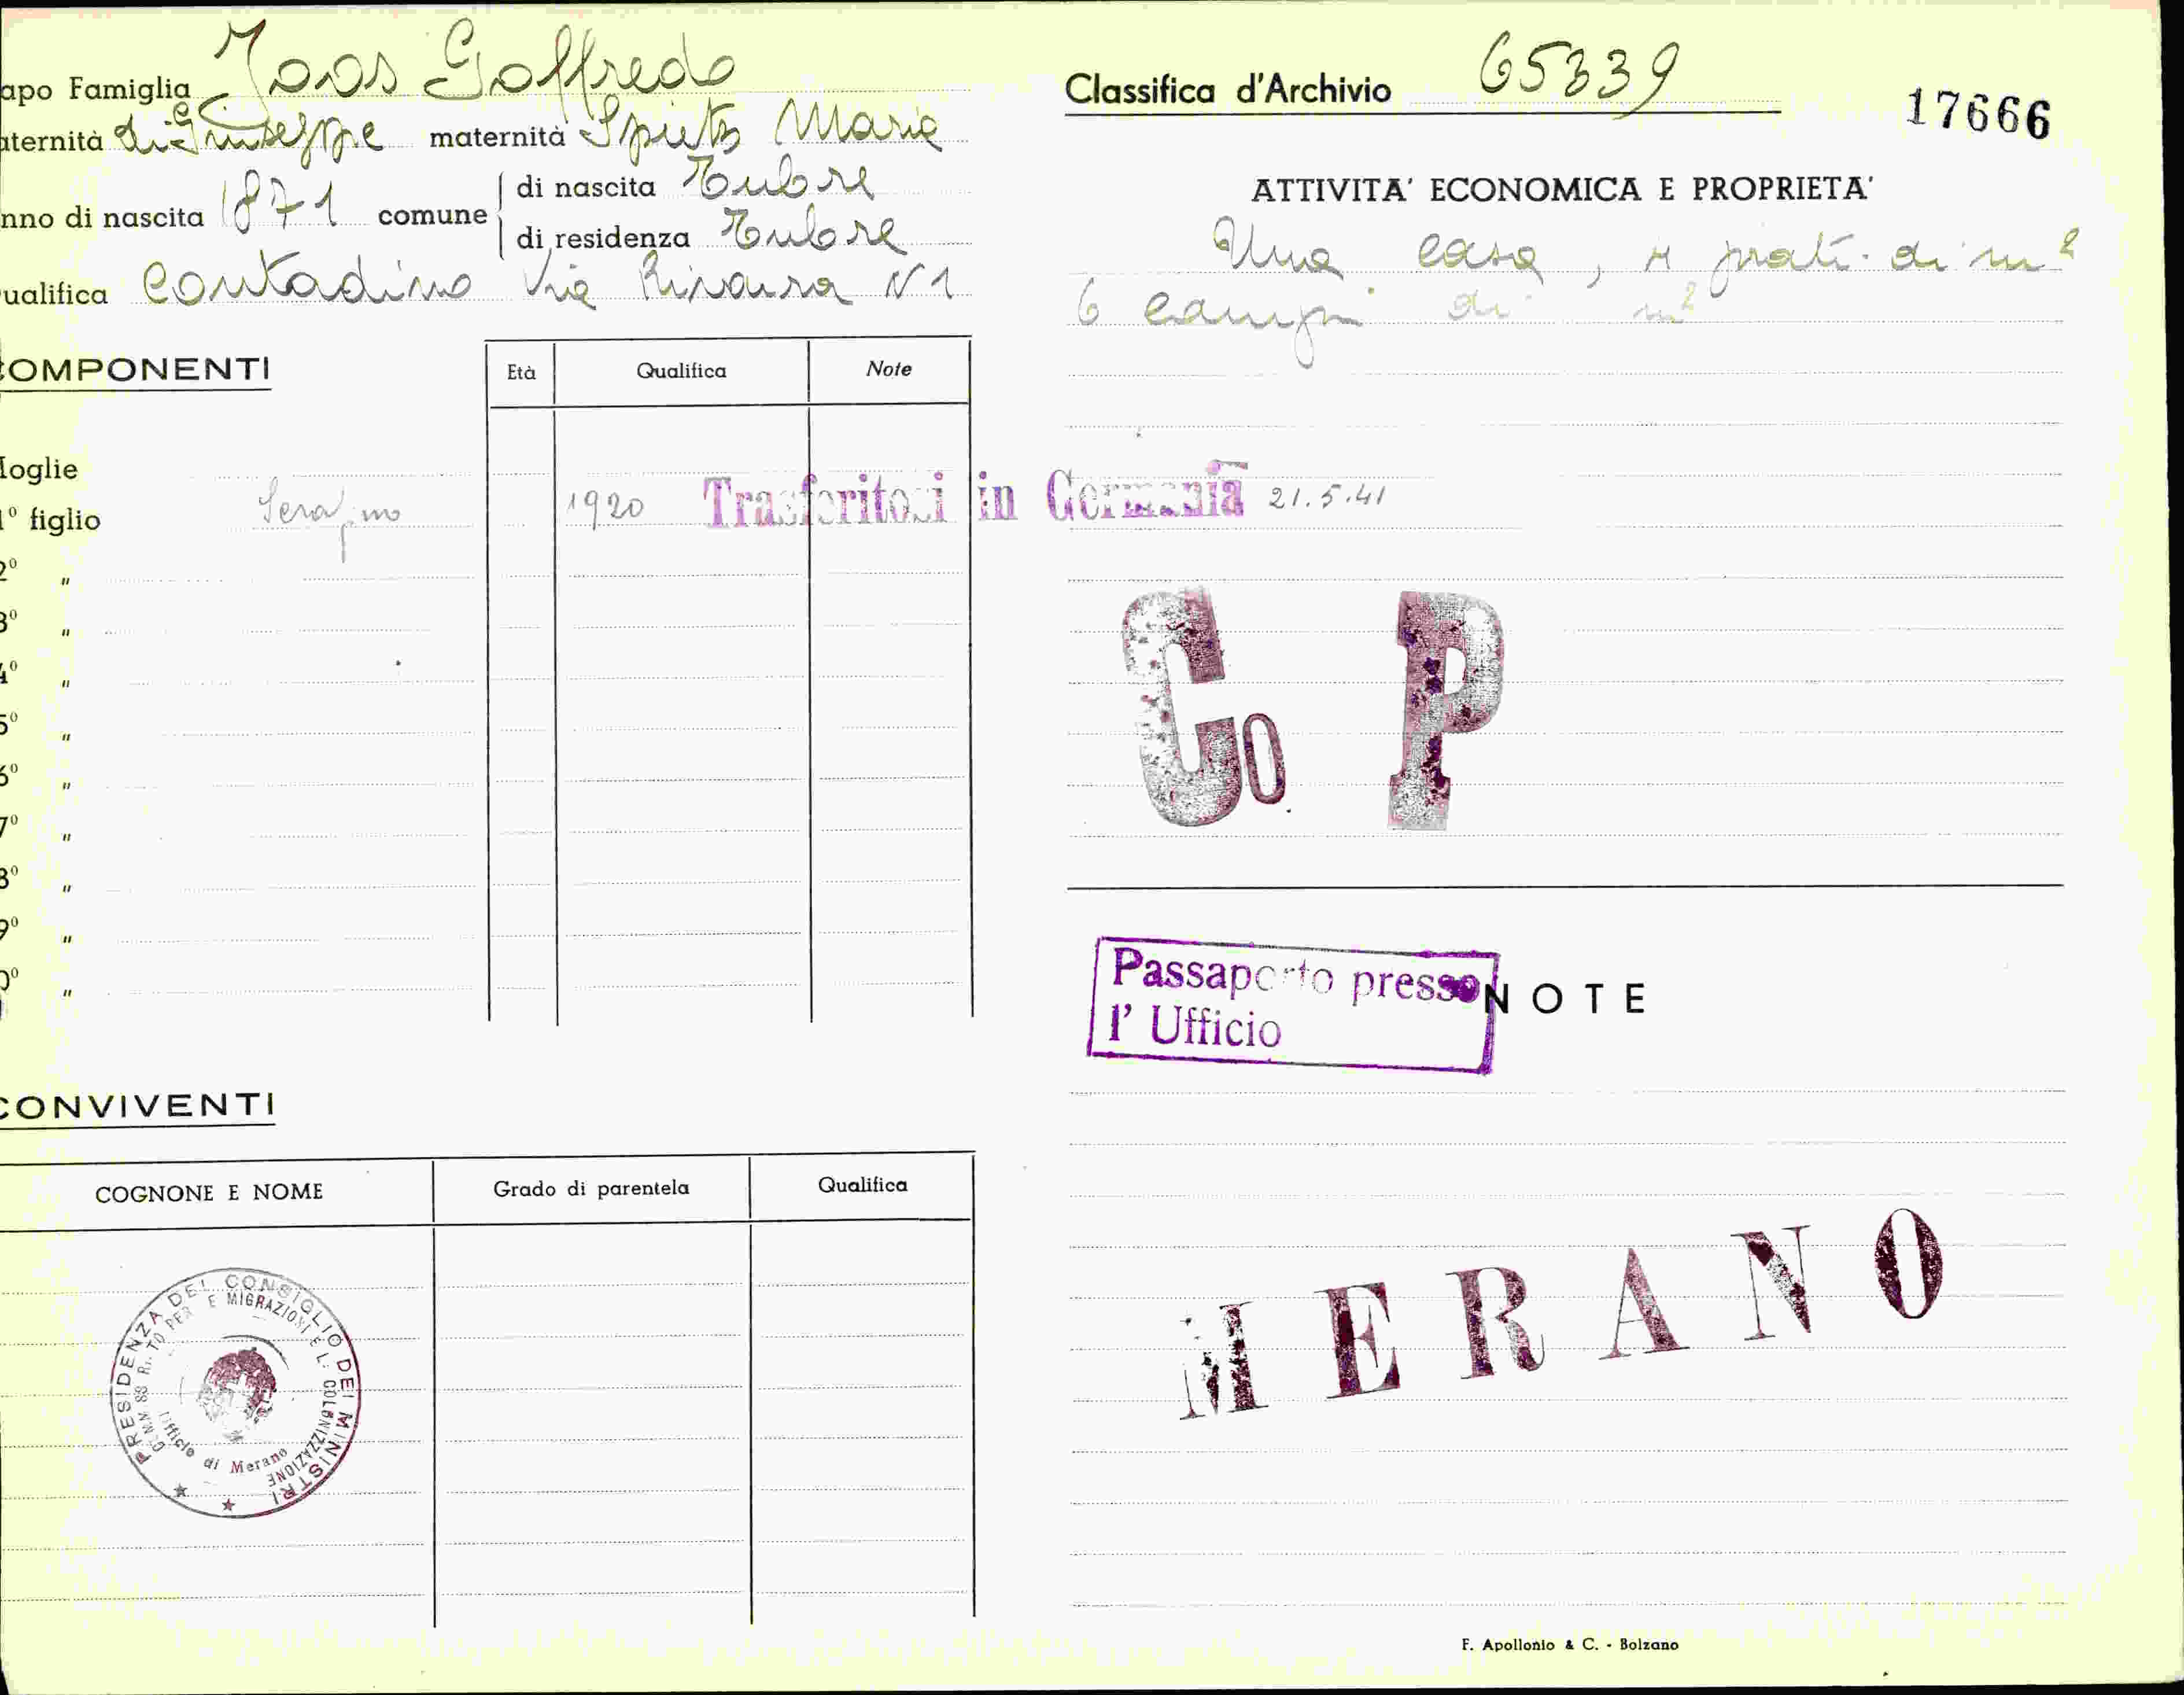 apo Famiglia Joos Goffredo
aternità di Giuseppe maternità Spiets Maria
nno di nascita 1871 comune di nascita Tubre
di residenza Tubre
ualifica Contadino Via Rivaira N 1
COMPONENTI
Età Qualifica Note
Moglie
1° figlio Serafino 1920 Trasferitosi in Germania 21.5.41
2° "
3° "
4° "
5° "
6° "
7° "
8° "
9° "
0° "
CONVIVENTI
COGNONE E NOME Grado di parentela Qualifica
PRESIDENZA DEL CONSIGLIO DEI MINISTRI
E MIGRAZIONI E L. COLONIZZAZIONE
Ufficio di Merano
Classifica d'Archivio 65339
17666
ATTIVITA' ECONOMICA E PROPRIETA'
Una casa, 4 prati di m²
6 campi di m²
Co P
Passaporto presso
l' Ufficio
NOTE
MERANO
F. Apollonio & C. - Bolzano